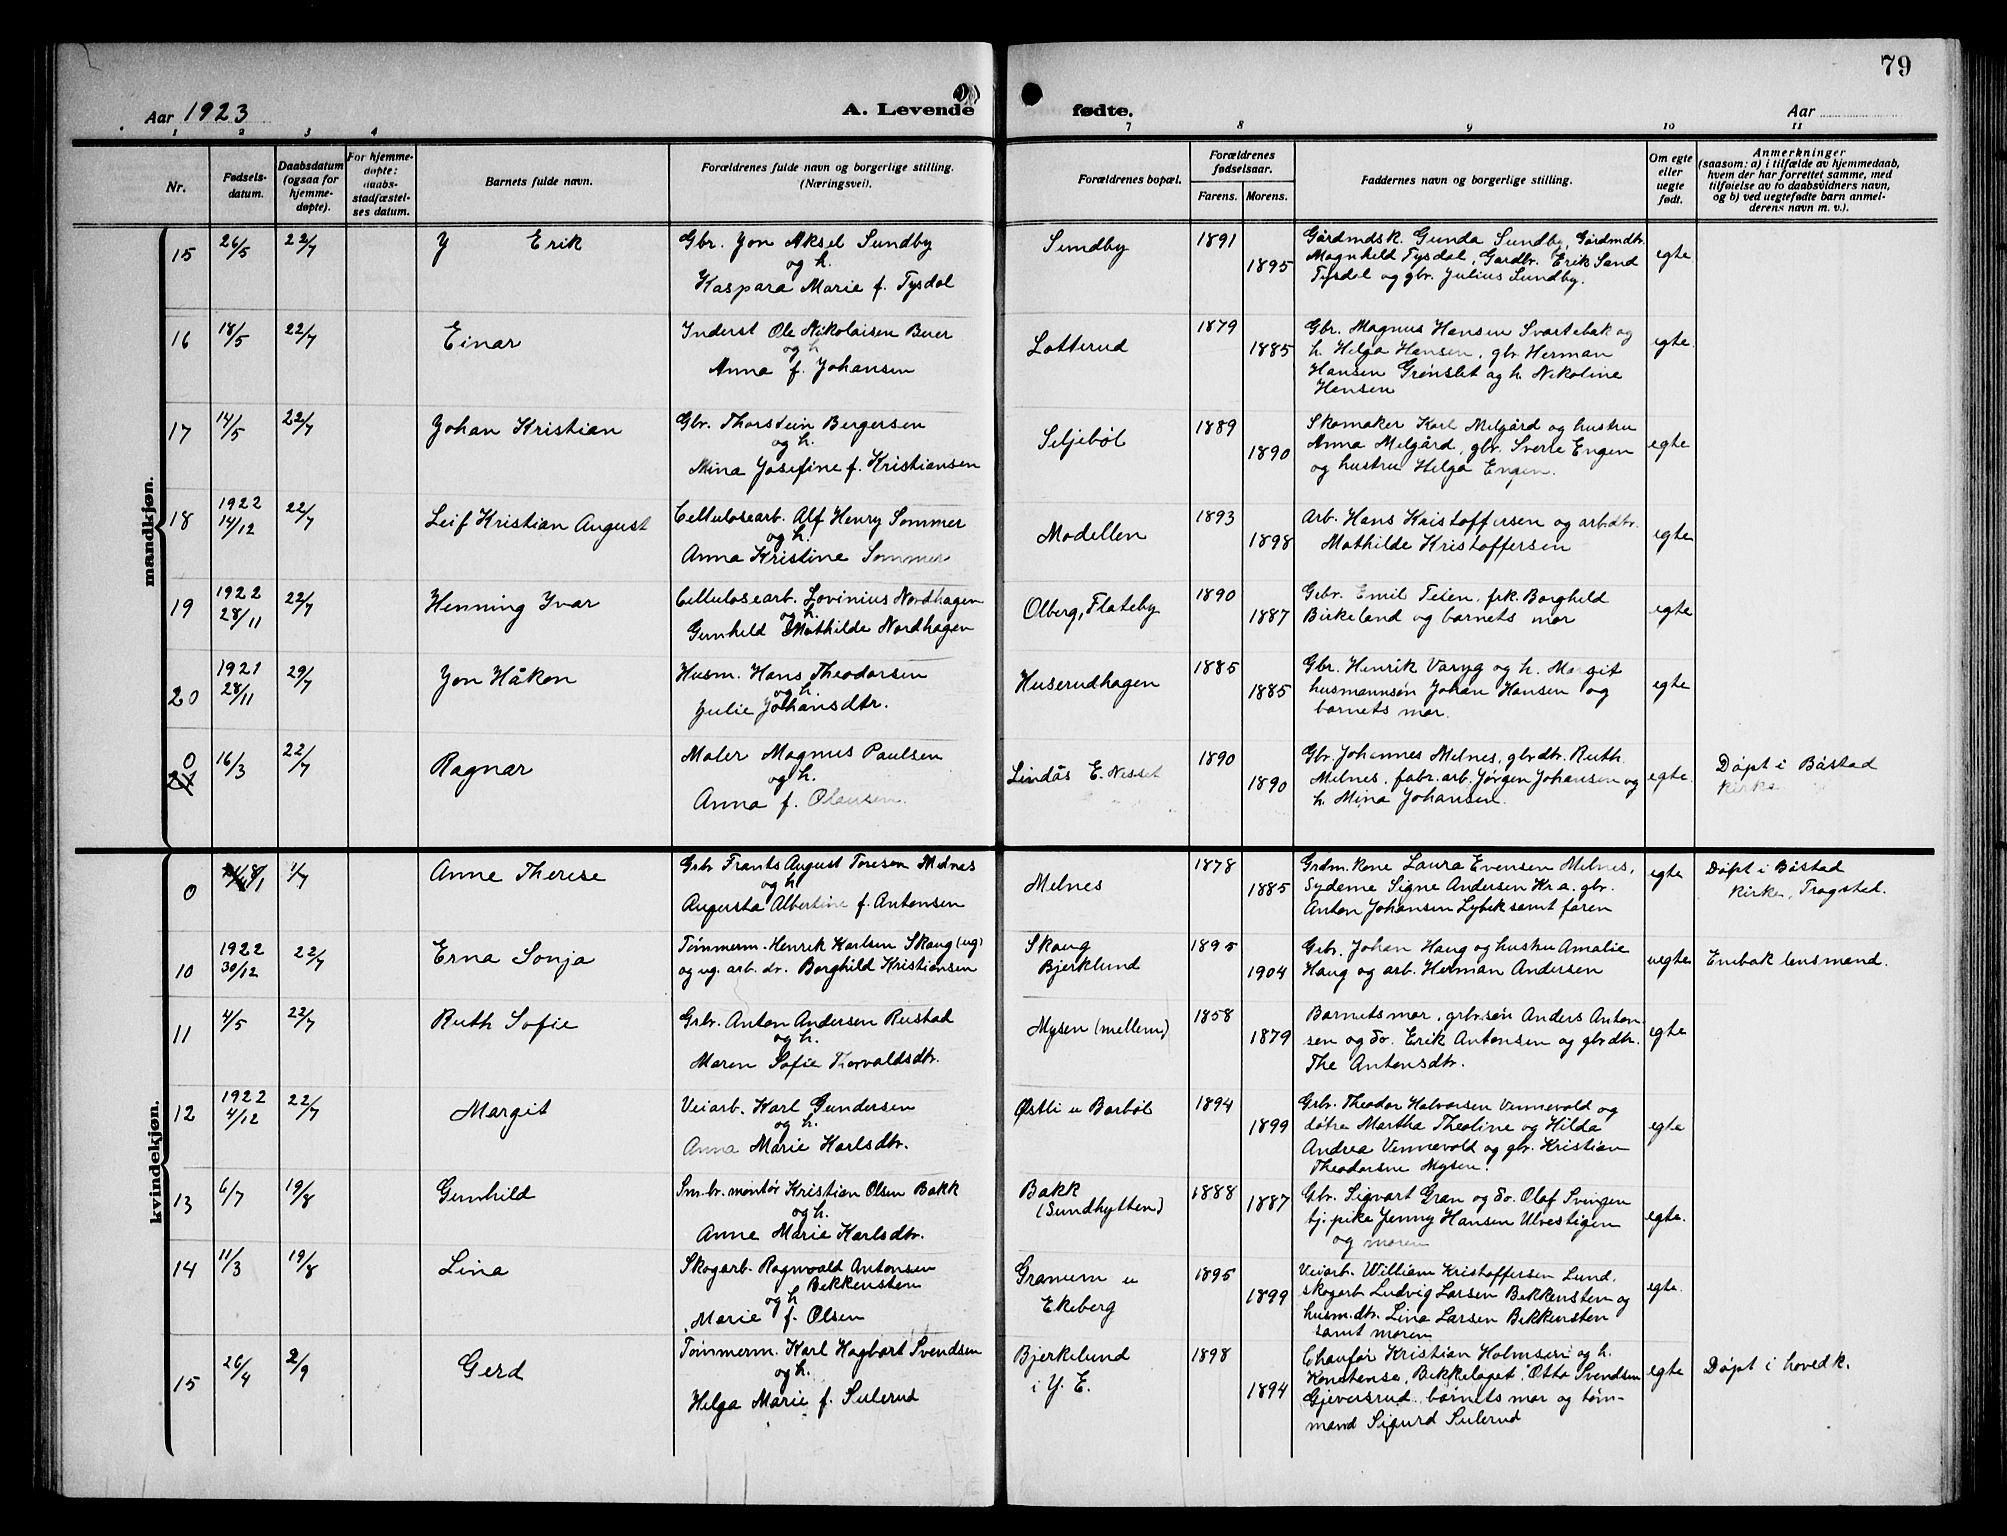 79
Aar 1923
A. Levende
fødte.
Aar
1 2 3 4 7 8 9 10 11
Nr.
Fødsels-
datum.
Daabsdatum
(ogsaa for
hjemme-
døpte).
For hjemme-
døpte:
daabs-
stadfæstel-
ses datum.
Barnets fulde navn.
Forældrenes fulde navn og borgerlige stilling.
(Næringsvei).
Forældrenes bopæl.
Forældrenes
fødselsaar.
Farens. Morens.
Faddernes navn og borgerlige stilling.
Om egte
eller
uegte
født.
Anmerkninger
(saasom: a) i tilfælde av hjemmedaab,
hvem der har forrettet samme, med
tilføielse av to daabsvidners navn,
og b) ved uegtefødte barn anmel-
derens navn m. v.).
mandkjøn.
15 26/5 22/7 Erik
Gbr. Jon Aksel Sundby
og h.
Kaspara Marie f. Tysdal
Sundby
1891
1895
Gårdmdsk. Gunda Sundby, Gårdmdtr.
Magnhild Tysdal, Gardbr. Erik Sand
Tysdal og gbr. Julius Sundby.
egte
16 18/5 22/7 Einar
Inderst Ole Nikolaisen Buer
og h
Anna f. Johansen
Lotterud
1879
1885
Gbr. Magnus Hansen Svartebak og
h. Helga Hansen, gbr Herman
Hansen Grønslet og h. Nikoline
Hansen
egte
17 14/5 22/7 Johan Kristian
Gbr. Thorstein Bergersen
og h.
Mina Josefine f. Kristiansen
Siljebøl
1889
1890
Skomaker Karl Melgård og hustru
Anna Melgård, gbr. Sverre Engen
og hustru Helga Engen.
egte
18 1922 14/12 22/7 Leif Kristian August
Cellulosearb. Alf Henry Sommer
og h.
Anna Kristine Sommer
Modellen
1893
1898
Arb. Hans Kristoffersen og arbdtr.
Mathilde Kristoffersen
egte
19 1922 28/11 22/7 Henning Ivar
Cellulosearb. Lovinius Nordhagen
og h.
Gunhild Mathilde Nordhagen
Olberg, Flateby
1890
1887
Gbr. Emil Teien, frk. Borghild
Birkeland og barnets mor
egte
20 1921 28/11 29/7 Jon Håkon
Husm. Hans Theodorsen
og h.
Julie Johansdtr.
Huserudhagen
1885
1885
Gbr. Henrik Varyg og h. Margit
husmannsøn Johan Hansen og
barnets mor.
egte
0
21 16/3 22/7 Ragnar
Maler Magnus Paulsen
og h.
Anna f. Olausen.
Lindås E. Nesset
1890
1890
Gbr. Johannes Melnes, gbrdtr. Ruth
Melnes, fabr. arb. Jørgen Johansen og
h. Mina Johansen.
egte.
Døpt i Båstad
kirke
kvindekjøn.
0 1/7 Anne Therese
Gbr Frants August Toresen Melnes
og h
Augusta Albertine f. Antonsen
Melnes
1878
1885
Grdm.kone Laura Evensen Melnes,
Syderne Signe Andersen Kr.a. gbr.
Anton Johansen Lybek samt faren
egte
Døpt i Båstad
kirke, Trøgstad.
10 1922 30/12 22/7 Erna Sonja
Tømmerm. Henrik Karlsen Skaug (ug)
og ug. arb. dr. Borghild Kristiansen
Skaug
Bjerklund
1895
1904
Gbr. Johan Haug og hustru Amalie
Haug og arb. Herman Andersen
uegte
Enebak lensmand.
11 4/5 22/7 Ruth Sofie
Gbr. Anton Andersen Rustad
og h.
Maren Sofie Thorvaldsdtr.
Mysen (mellem)
1858
1879
Barnets mor, grbr.søn Anders Anton-
sen og do. Erik Antonsen og gbrdtr.
The Antonsdtr.
egte
12 1922 4/12 22/7 Margit
Veiarb. Karl Gundersen
og h.
Anna Marie Karlsdtr.
Østli u Barbøl
1894
1899
Gbr. Theodor Halvorsen Vennevold og
døtre Martha Theoline og Hilda
Andrea Vennevold og gbr. Kristian
Theodorsne Mysen.
egte
13 6/7 19/8 Gunhild
Sm.br. montør Kristian Olsen Bakk
og h.
Anne Marie Karlsdtr.
Bakk
(Sundhytten)
1888
1887
Gbr. Sigvart Gran og do. Olaf Svingen
tj. pike Jenny Hansen Ulvestigen
og moren
egte.
14 11/3 19/8 Lina
Skogarb. Ragnvald Antonsen
Bekkensten
og h
Marie f. Olsen
Granum u
Ekeberg
1895
1899
Veiarb. William Kristoffersen Lund,
skogarb Ludvig Larsen Bekkensten og
husm.dtr. Lina Larsen Bekkensten
samt moren
egte.
15 26/4 2/9 Gerd
Tømmerm. Karl Hagbart Svendsen
og h.
Helga Marie f. Sulerud
Bjerkelund
i Y. E.
1898
1894
Chauför Kristian Holmsen og h.
Konstense, Bekkelaget, Otto Svendsen
Gjeversrud, barnets mor og tøm-
mand Sigurd Sulerud
egte
Døpt i hovedk.